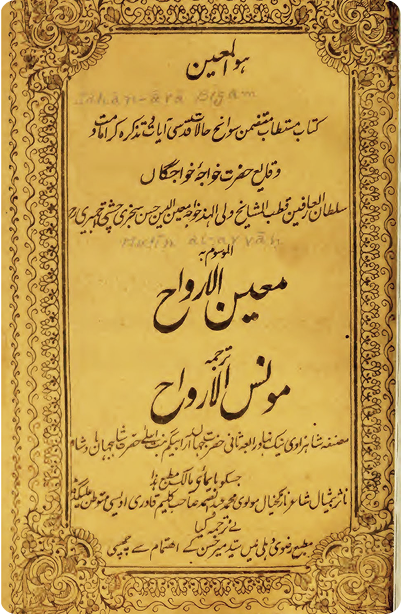 ہو المعین
Jahān-ārā Bigam
کتاب مستطاب متضمن سوانح حالات قدسی آیات و تذکرہ کرامات
و وقایع حضرت خواجۂ خواجگان
سلطان العارفین قطب المشایخ ولی الہند خواجہ معین الدین حسن سنجری چشتی اجمیری
Mu'īn al-arvāḥ
الموسوم بہ
معین الارواح
ترجمہ
مونس الارواح
مصنفہ شاہزادی نیک نہاد رابعہ ثانی حضرت جہاں آرا بیگم بنت اعلیٰ حضرت شاہجہاں بادشاہ
جسکو بایمائے مالک مطبع ہذا
ناثر بیمثال شاعر نازکخیال مولوی محمد عبدالصمد صاحب کلیم قادری اویسی متوطن
نے ترجمہ کیا
مطبع رضوی دہلی میں سید میر حسن کے اہتمام سے چھپی